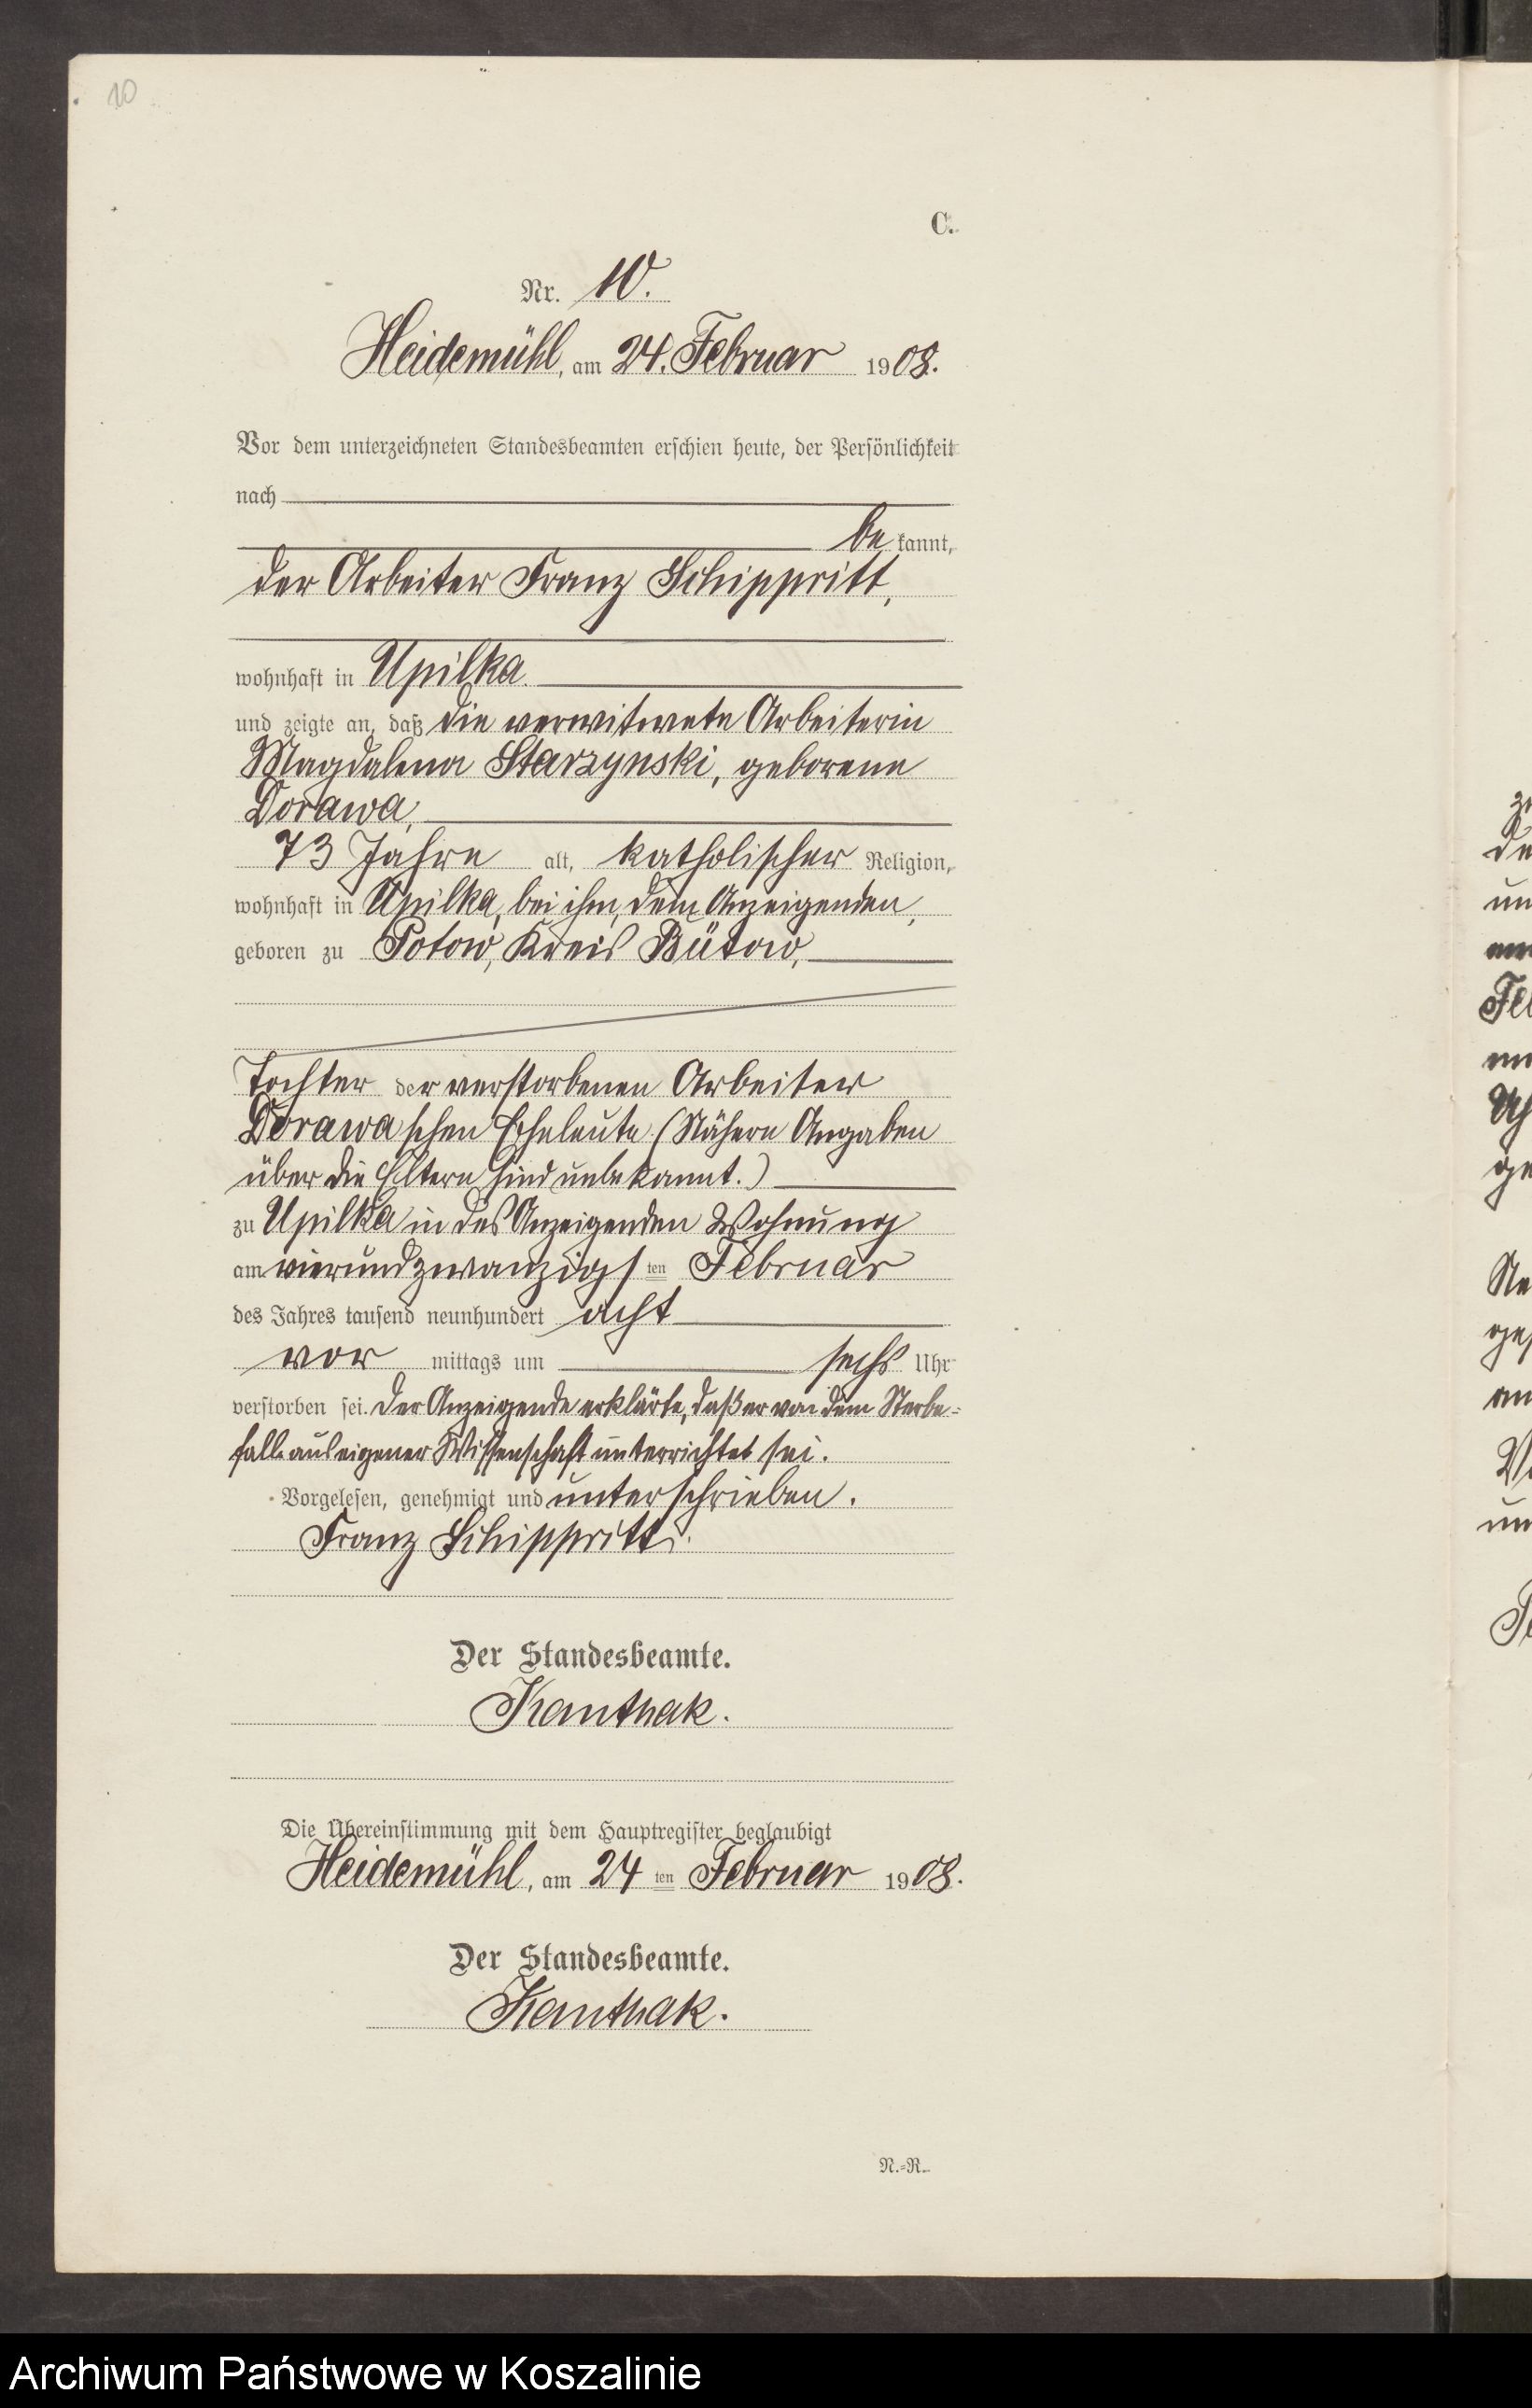 10
C.
Nr. 10.
Heidemühl, am 24. Februar 1908.
Vor dem unterzeichneten Standesbeamten erschien heute, der Persönlichkeit
nach
be kannt,
der Arbeiter Franz Schippritt,
wohnhaft in Upilka
und zeigte an, daß die verwitwete Arbeiterin
Magdalena Starzynski, geborene
Dorawa,
73 Jahre alt, katholischer Religion,
wohnhaft in Upilka, bei ihm, dem Anzeigenden,
geboren zu Potow, Kreis Bütow,
Tochter der verstorbenen Arbeiter
Dorawaschen Eheleute (Nähere Angaben
über die Eltern sind unbekannt.)
zu Upilka in des Anzeigenden Wohnung
am vierundzwanzigsten Februar
des Jahres tausend neunhundert acht
vor mittags um sechs Uhr
verstorben sei. Der Anzeigende erklärte, daß er von dem Sterbe=
falle aus eigener Wissenschaft unterrichtet sei.
Vorgelesen, genehmigt und unterschrieben.
Franz Schippritt.
Der Standesbeamte.
Kanthak.
Die Übereinstimmung mit dem Hauptregister beglaubigt
Heidemühl, am 24 ten Februar 1908.
Der Standesbeamte.
Kanthak.
N.=R.
Archiwum Państwowe w Koszalinie